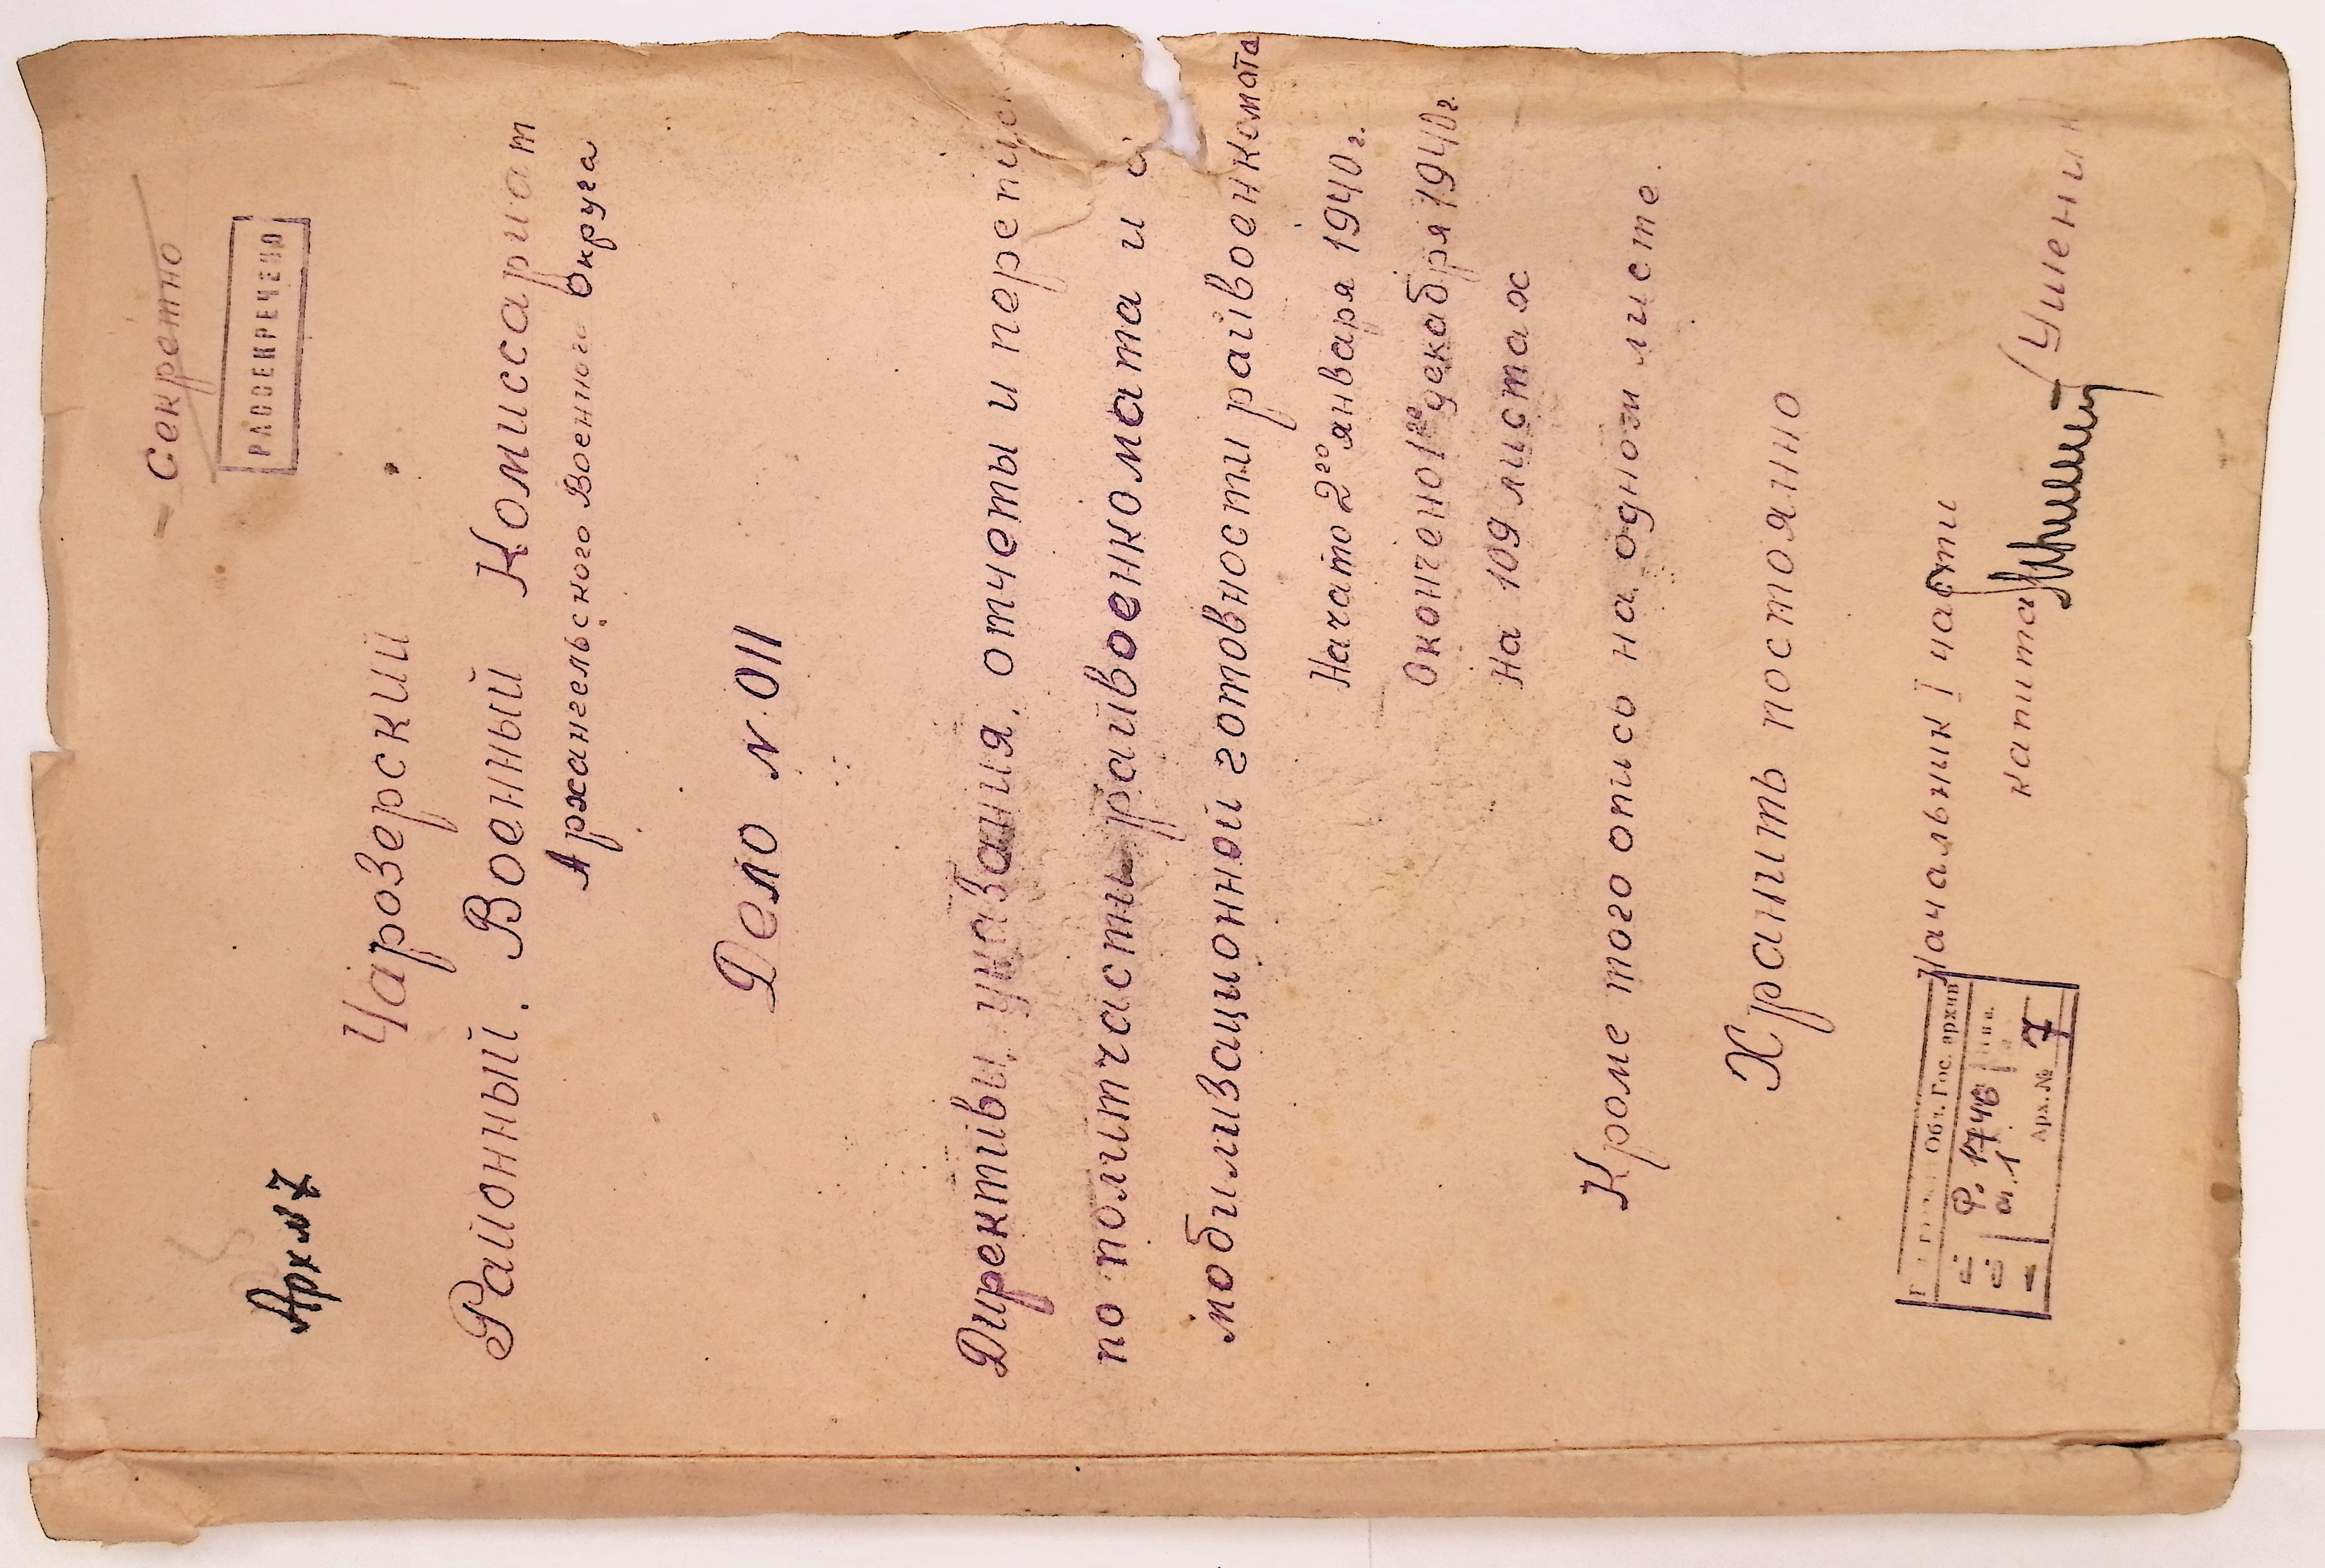 Секретно
РАССЕКРЕЧЕНО
Арх № 7
Чарозерский
Районный Военный Комиссариат
Архангельского Военного Округа
Дело № 011
Директивы, указания, отчеты и
по политчасти райвоенкомата и
мобилизационной готовности райвоенкомата
Начато 2го января 1940 г.
Окончено 1го декабря 1940 г.
На 109 листах
Кроме того опись на одном листе
Хранить постоянно
Начальник I части
капитан
Обл. Гос. архив
Ф. 1746
оп. 1
Арх. № 7